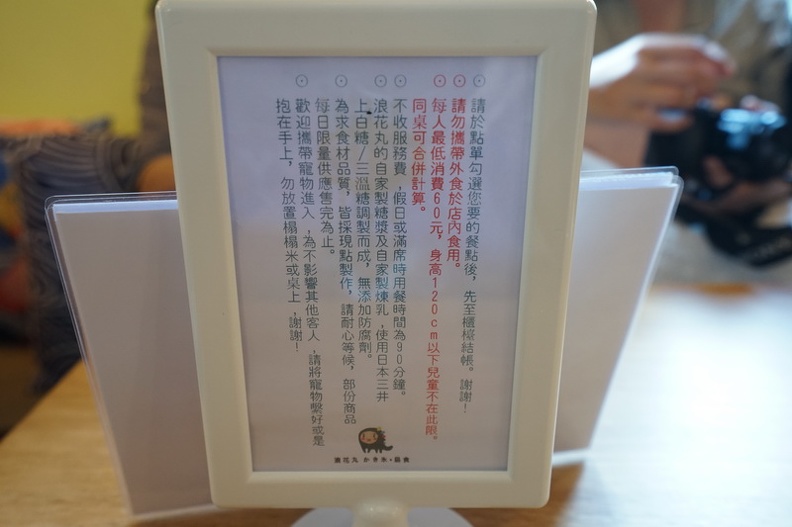 請於點單勾選您要的餐點後，先至櫃檯結帳。謝謝！
請勿攜帶外食於店內食用。
每人最低消費60元，身高120cm以下兒童不在此限。
同桌可合併計算。
不收服務費，假日或滿席時用餐時間為90分鐘。
浪花丸的自家製糖漿及自家製煉乳，使用日本三井
上白糖/三溫糖調製而成，無添加防腐劑。
為求食材品質，皆採現點製作，請耐心等候，部份商品
每日限量供應售完為止。
歡迎攜帶寵物進入，為不影響其他客人，請將寵物繫好或是
抱在手上，勿放置榻榻米或桌上，謝謝！
浪花丸 かき氷·甜食